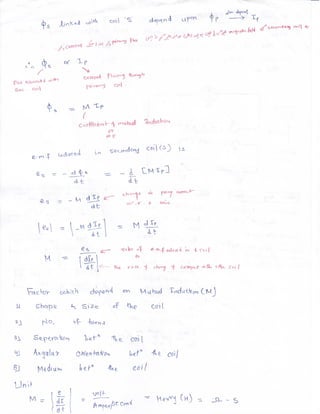 ϕs linked with coil S depend upon ϕp → Ip
∴ ϕs ∝ Ip
Flux associated with
Sec coil
current flowing through
primary coil
ϕs = M Ip
Coefficient of mutual Induction
or
e.m.f induced in secondary coil (S) is
es = - dϕs/dt = - d/dt [M Ip]
es = - M dIp/dt change in primary current
w.r.t time
|es| = |-M dIp/dt| = M dIp/dt
M = es / |dIp/dt|
ratio of e.m.f induced in S coil
to
the rate of change of current in the coil
Factor which depend on Mutual Induction (M)
1) Shape & Size of the coil
2) no. of turns
3) Seperation betn the coil
4) Angular Orientation betn the coil
5) Medium betn the coil
Unit
M = |e / dI/dt| = volt / Ampere/second = Henry (H) = Ω - S